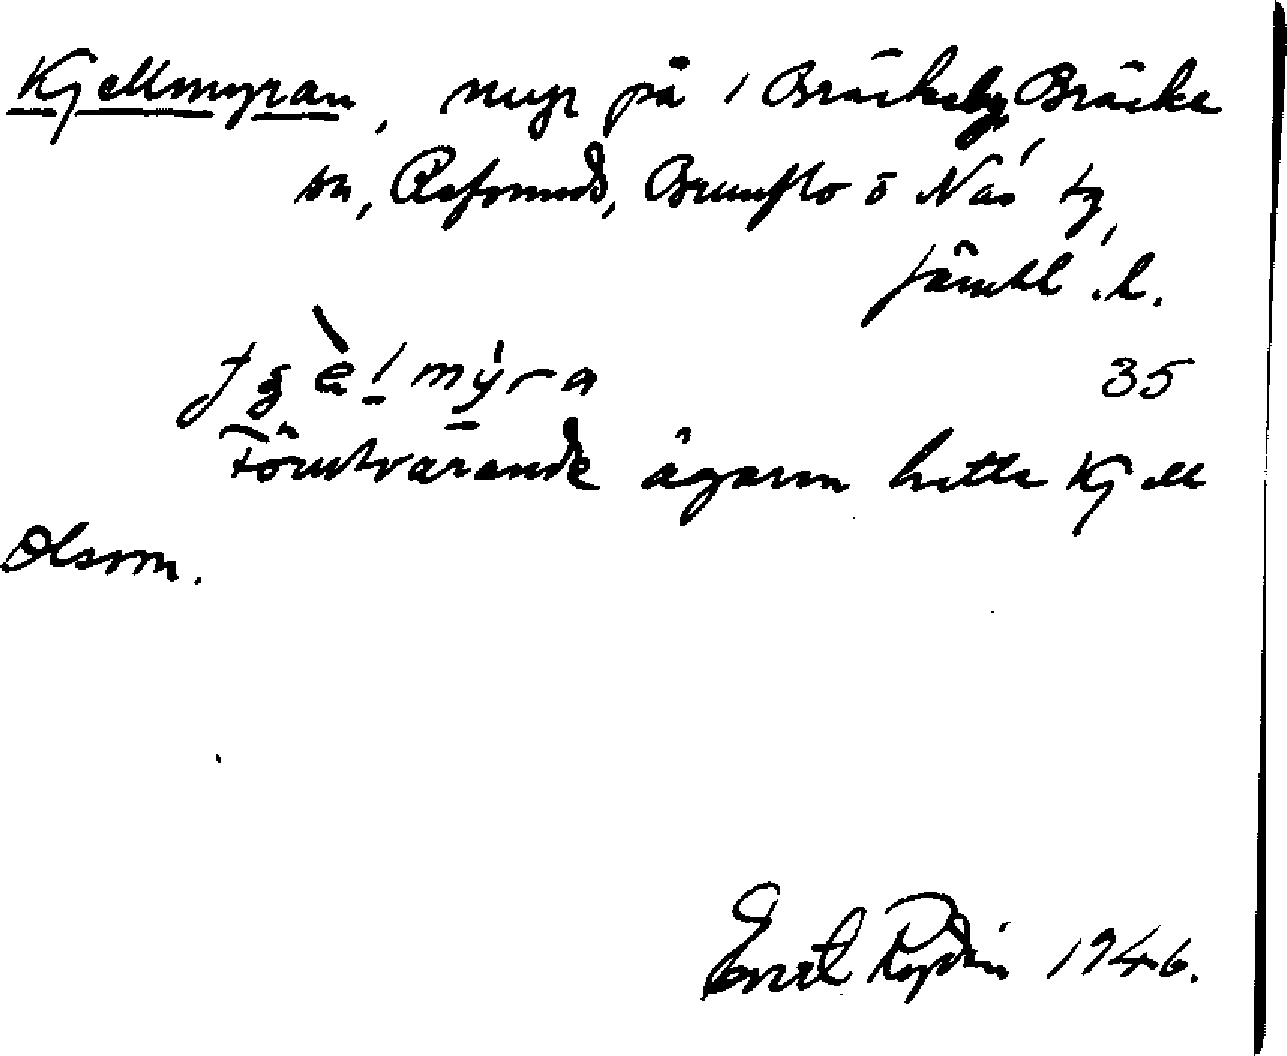 Kjellmyran, myr på i Bräcke by Bräcke
sn, Refsunds, Brunflo o Näs tg,
Jämtl. l.
35
Förutvarande ägaren hette Kjell
Olsson.
1946.